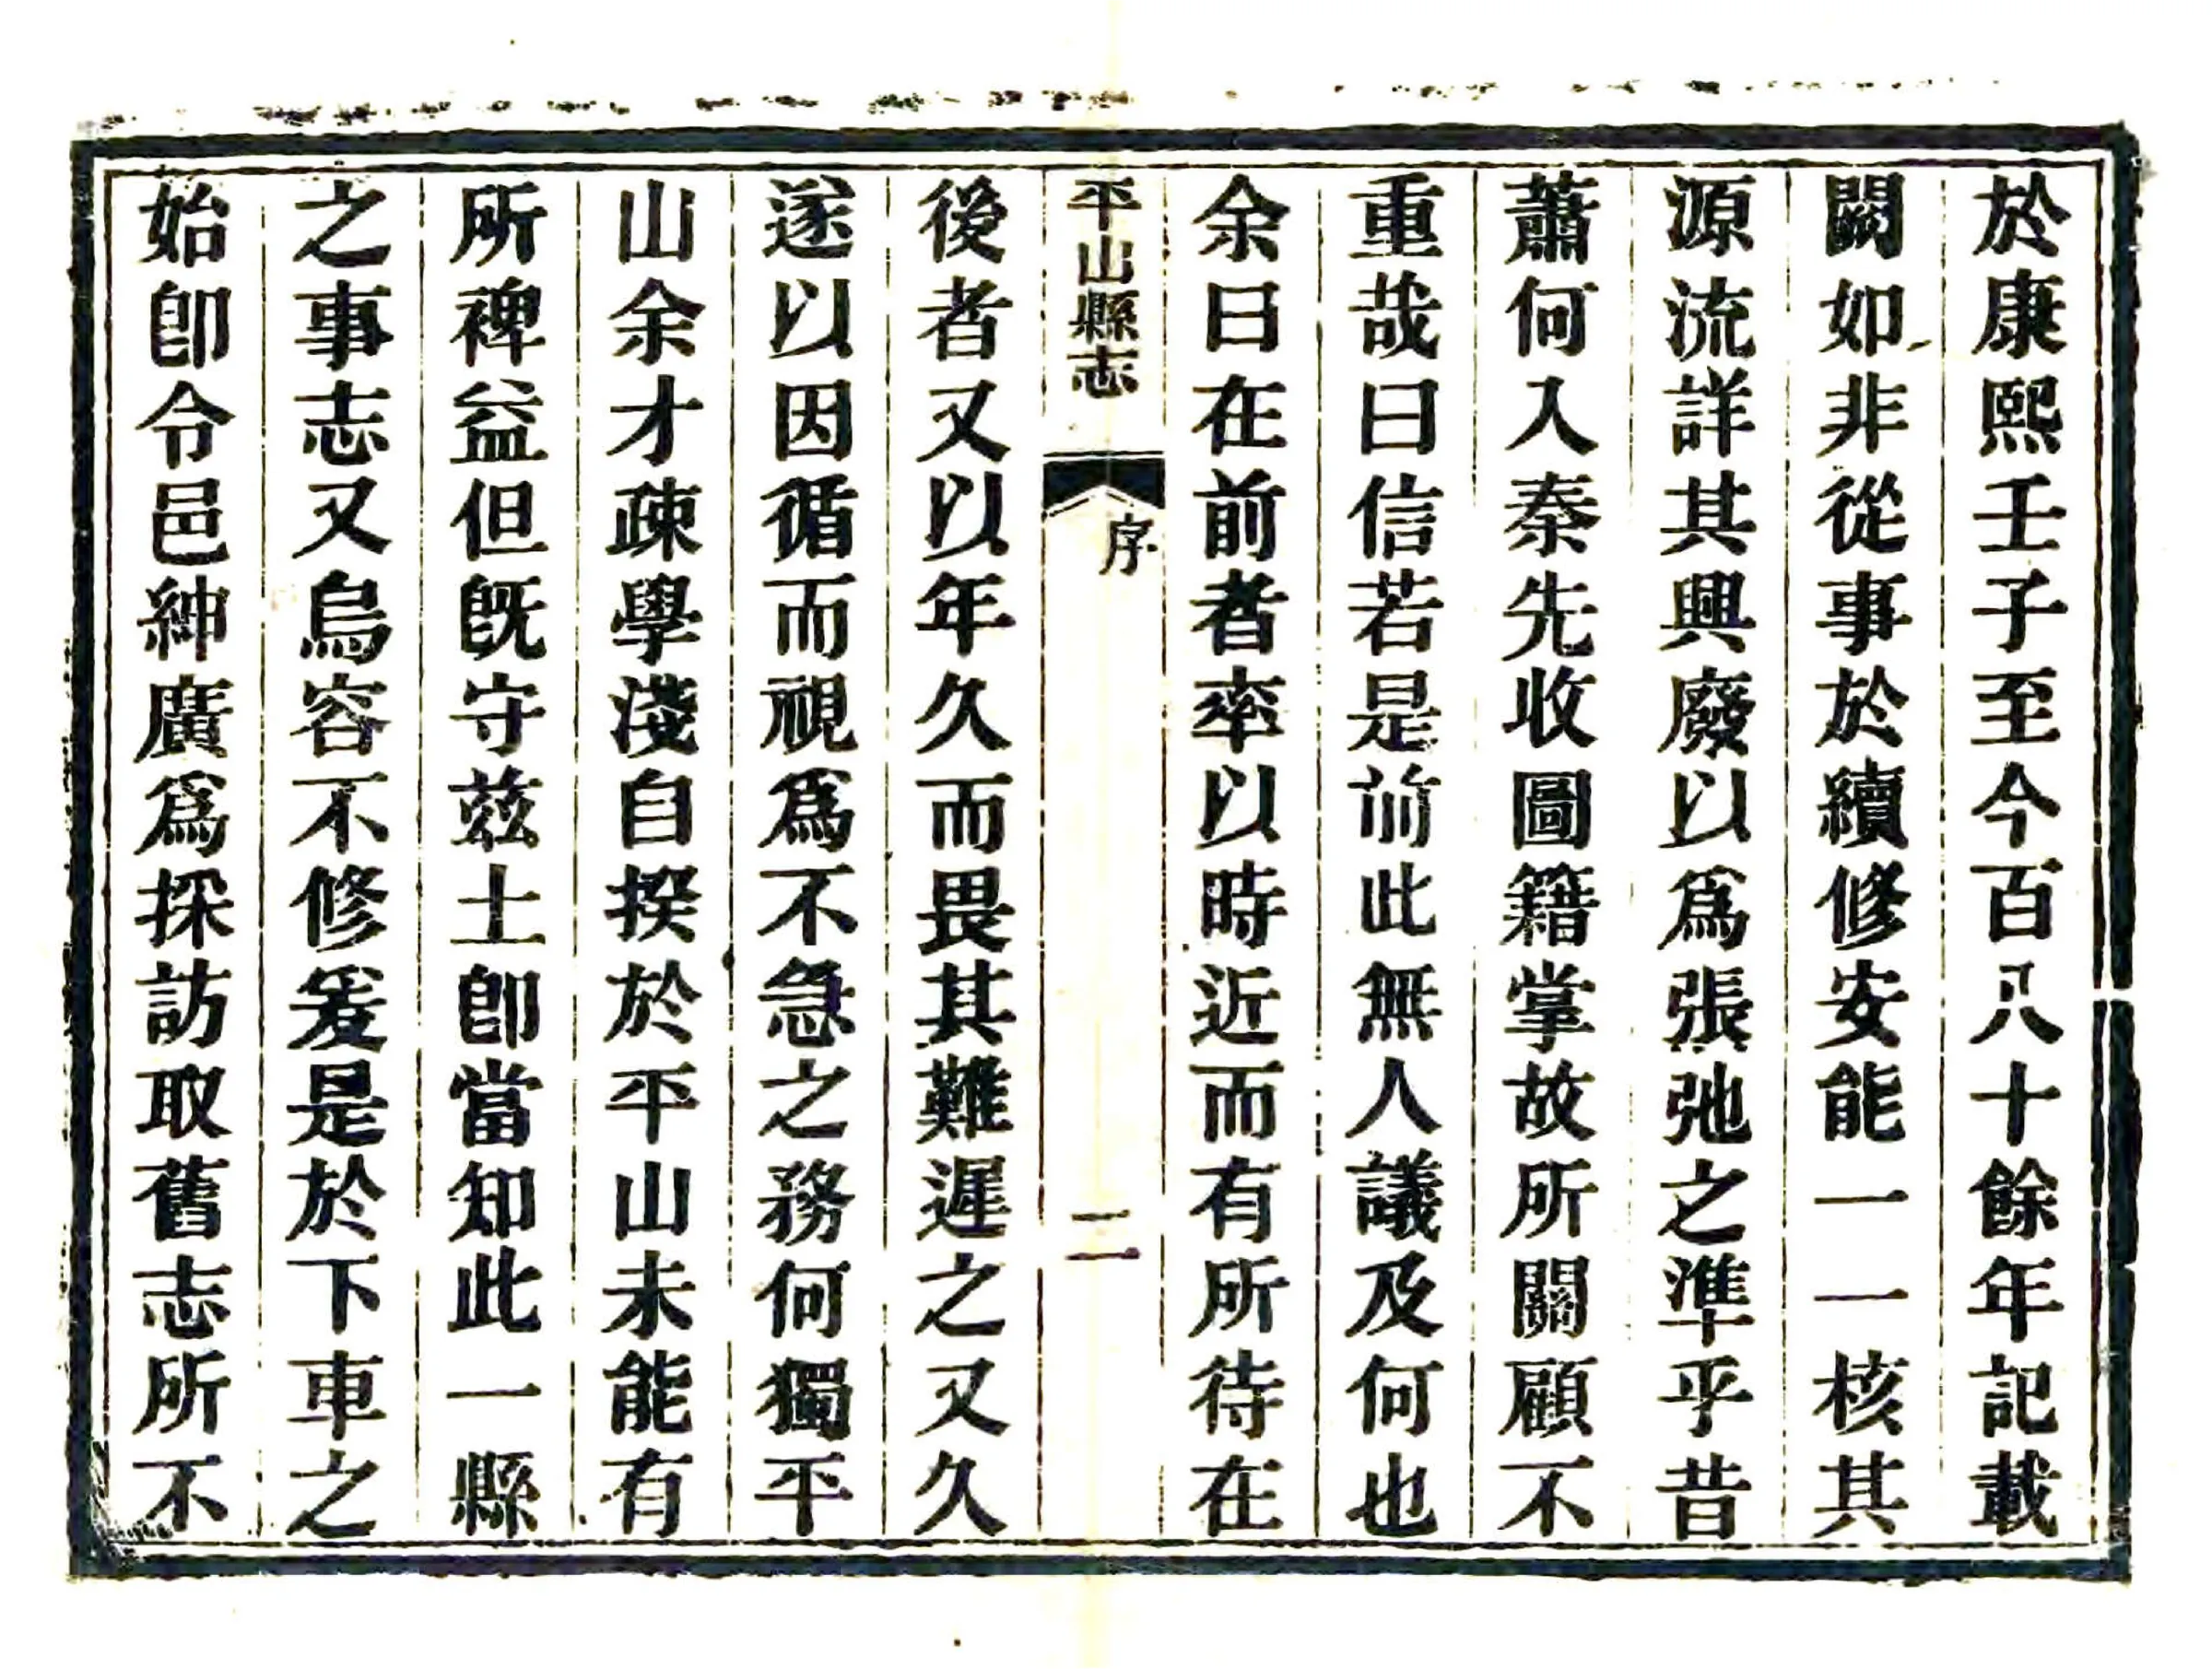 於康熙壬子至今百八十餘年記載
闕如非從事於續修安能一一核其
源流詳其興廢以爲張弛之準乎昔
蕭何入秦先收圖籍掌故所關顧不
重哉曰信若是前此無人議及何也
余曰在前者率以時近而有所待在
平山縣志
序
二
後者又以年久而畏其難遲之又久
遂以因循而視爲不急之務何獨平
山余才疎學淺自揆於平山未能有
所裨益但旣守茲土卽當知此一縣
之事志又烏容不修爰是於下車之
始卽令邑紳廣爲採訪取舊志所不